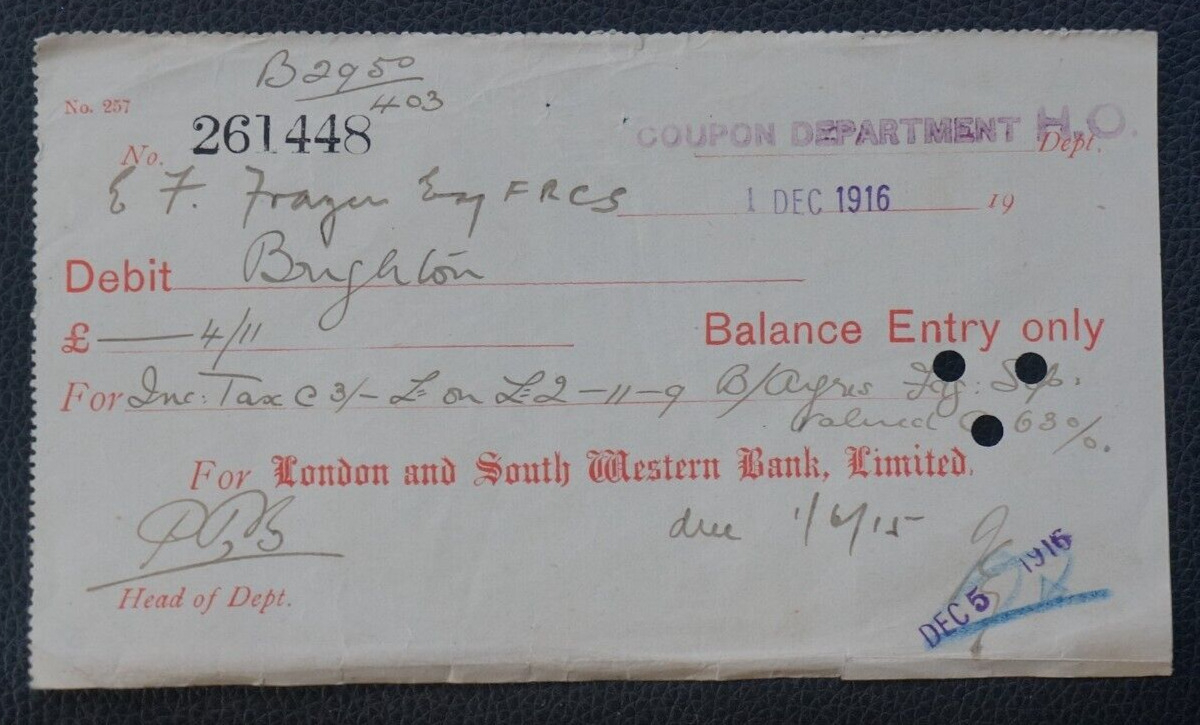 B2950
403
No. 257
No. 261448
COUPON DEPARTMENT H.O.
Dept.
E F. Frazer Esq FRCS
1 DEC 1916 19
Debit Brighton
£ — 4/11
Balance Entry only
For Inc: Tax @ 3/- £ on £2-11-9 B/Ayres
valued @ 63%.
For London and South Western Bank, Limited.
due 1/6/15
Head of Dept.
DEC 5 1916